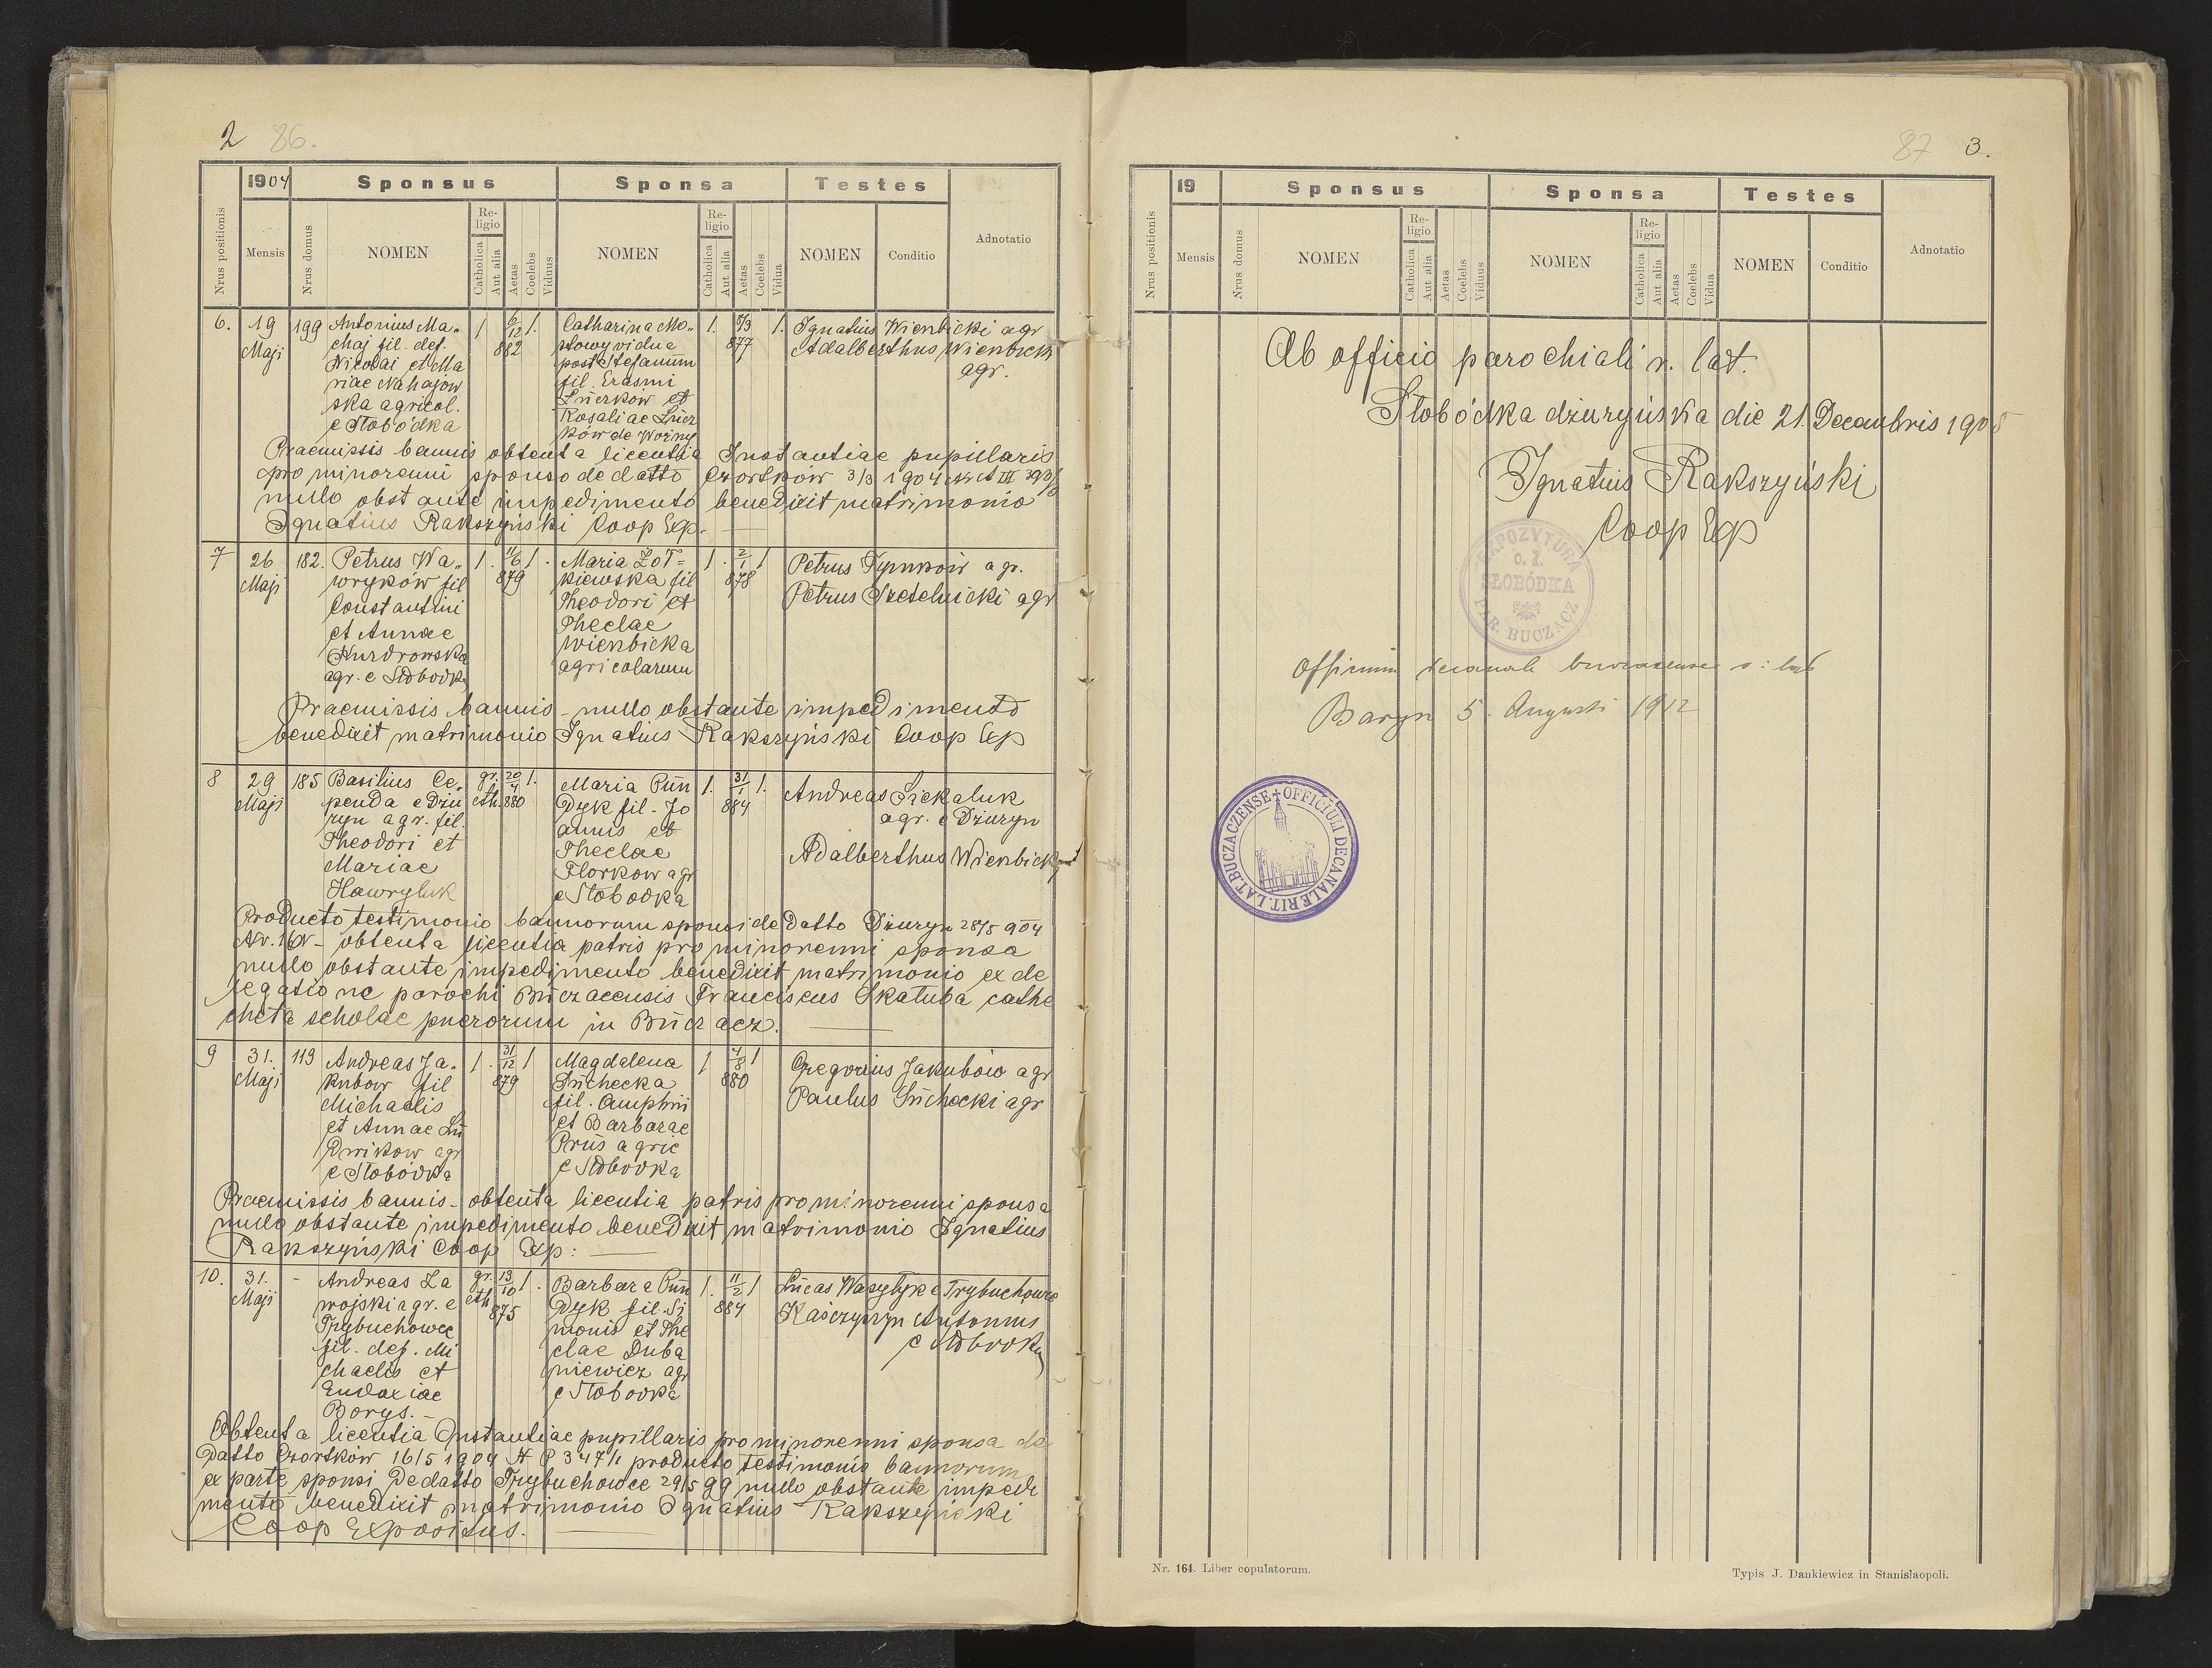 2 86.
1904 Sponsus Sponsa Testes
Nrus positionis Mensis Nrus domus NOMEN Religio Catholica Aut alia Aetas Coelebs Viduus NOMEN Religio Catholica Aut alia Aetas Coelebs Vidua NOMEN Conditio Adnotatio
6. 19 Maji 199
Antonius Ma-
chaj fil. def.
Nicolai et Ma
riae Nahajow
ska agricol.
e Słobódka
1 6/12 882 1.
Catharina Mo-
stowy vidua
post Stefanum
fil. Erasmi
Łuczkow et
Rosaliae Łucz
ków de Woźny
1. 877 1.
Ignatius Wienbicki agr
Adalberthus Wienbick
agr.
Praemissis bannis obtenta licentia Instantiae pupillaris
pro minorenni sponso de datto Czortków 3/3 1904
nullo obstante impedimento benedixit matrimonio
Ignatius Rakszyński Coop Exp.
7 26 Maji 182.
Petrus Wa-
wryków fil
Constantini
et Annae
Kurdrowska
agr. e Słobodka
1. 11/6 879 1.
Maria Żoł-
kiewska fil
Theodori et
Theclae
Wienbicka
agricolarum
1. 2/1 878 1
Petrus Tymków agr.
Petrus Szetelnicki agr
Praemissis bannis - nullo obstante impedimento
benedixit matrimonio Ignatius Rakszyński Coop Exp
8 29 Maji 185
Basilius Ce-
penda e Dżu
ryn agr. fil.
Theodori et
Mariae
Hawryluk
gr. cth. 20/4 880 1.
Maria Pun
dyk fil. Jo
annis et
Theclae
Florkow agr
e Słobodka
1. 31/1 884 1.
Andreas Siekaluk
agr. e Dżuryn
Adalberthus Wienbicki
Producto testimonio bannorum sponsi de datto Dżuryn 28/5 904
obtenta licentia patris pro minorenni sponsa
nullo obstante impedimento benedixit matrimonio ex de
legatione parochi Buczaczensis Franciscus Skałuba cathe
cheta scholae puerorum in Buczacz.
9 31. Maji 113
Andreas Ja-
kubow fil
Michaelis
et Annae Lu
dwikow agr
e Słobódka
1. 31/12 879 1
Magdalena
Suchecka
fil. Amphrii
et Barbarae
Prus agric
e Słobodka
1 4/8 880 1
Gregorius Jakubów agr
Paulus Suchecki agr
Praemissis bannis - obtenta licentia patris pro minorenni sponsa
nullo obstante impedimento benedixit matrimonio Ignatius
Rakszyński Coop Exp:
10. 31. Maji -
Andreas Za
wojski agr. e
Trybuchowce
fil. def. Mi
chaelis et
Eudoxiae
Borys. -
gr. cth 13/10 875 1.
Barbara Pun
dyk fil. Si
monis et The
clae Duba
niewicz agr
e Słobodka
1. 11/2 884 1
Lucas Wasylyk e Trybuchowce
Kaszczyszyn Antonius
e Słobodka
Obtenta licentia Instantiae pupillaris pro minorenni sponsa de
datto Czortków 16/5 1904 producto testimonio bannorum
ex parte sponsi de datto Trybuchowce 29/5 99 nullo obstante impedi
mento benedixit matrimonio Ignatius Rakszyński
Coop Expositus.
87 3.
19 Sponsus Sponsa Testes
Nrus positionis Mensis Nrus domus NOMEN Religio Catholica Aut alia Aetas Coelebs Viduus NOMEN Religio Catholica Aut alia Aetas Coelebs Vidua NOMEN Conditio Adnotatio
Ab officio parochiali r. lat.
Słobódka dżuryńska die 21. Decembris 1905
Ignatius Rakszyński
Coop Exp
EXPOZYTURA
o. ł.
SŁOBÓDKA
PAR. BUCZACZ
Officium decanale buczacense r: lat
Barysz 5. Augusti 1912
OFFICIUM DECANALE RIT. LAT. BUCZACZENSE
Nr. 164. Liber copulatorum.
Typis J. Dankiewicz in Stanislaopoli.